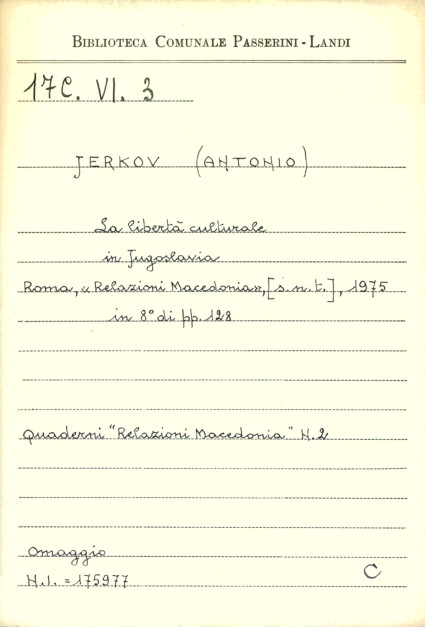 BIBLIOTECA COMUNALE PASSERINI - LANDI
17C. VI. 3
JERKOV (ANTONIO)
La libertà culturale
in Jugoslavia
Roma, «Relazioni Macedonia», [s. n. t.], 1975
in 8° di pp. 128
Quaderni "Relazioni Macedonia" N. 2
Omaggio
N.I. = 175977
C